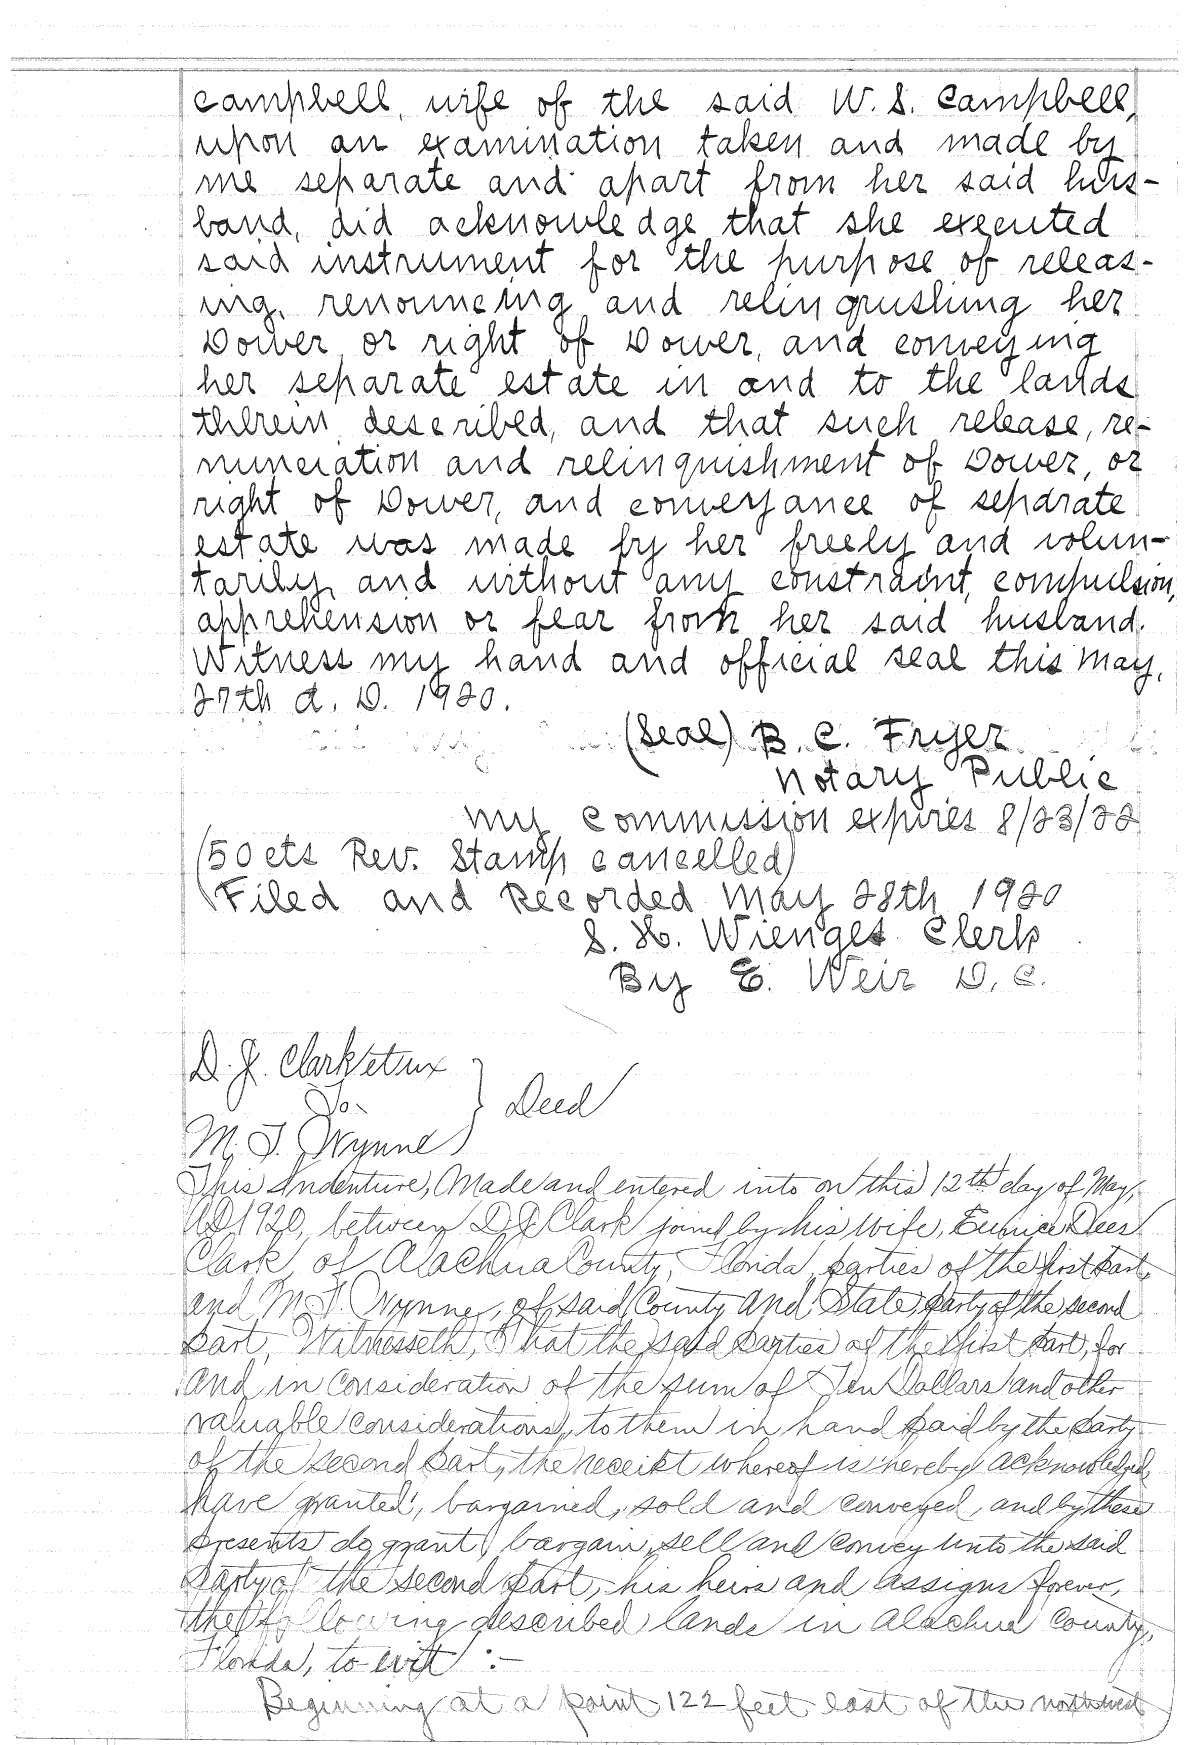 Campbell, wife of the said W. S. Campbell,
upon an examination taken and made by
me separate and apart from her said hus-
band, did acknowledge that she executed
said instrument for the purpose of releas-
ing, renouncing and relinqushing her
Dower or right of Dower, and conveying
her separate estate in and to the lands
therein described, and that such release, re-
nunciation and relinquishment of Dower, or
right of Dower, and conveyance of separate
estate was made by her freely and volun-
tarily and without any constraint, compulsion,
apprehension or fear from her said husband.
Witness my hand and official seal this May,
27th A. D. 1920.
(Seal) B. C. Fryer
Notary Public
My Commission expires 8/23/22
(50cts Rev. Stamp cancelled)
Filed and Recorded May 28th 1920
S. H. Wienges Clerk
By E. Weir D. C.
D. J. Clark et ux
To
M. T. Wynne } Deed
This Indenture, Made and entered into on this 12th day of May,
AD 1920, between D J Clark joined by his wife, Eunice Dees
Clark, of Alachua County, Florida, parties of the first part,
and M. T. Wynne, of said County and State, party of the second
part, Witnesseth, That the said parties of the first part, for
and in consideration of the sum of Ten Dollars and other
valuable considerations, to them in hand paid by the party
of the second part, the receipt whereof is hereby acknowledged,
have granted, bargained, sold and conveyed, and by these
presents do grant, bargain, sell and convey unto the said
party of the second part, his heirs and assigns forever,
the following described lands in Alachua County,
Florida, to wit :-
Beginning at a point 122 feet East of the northwest